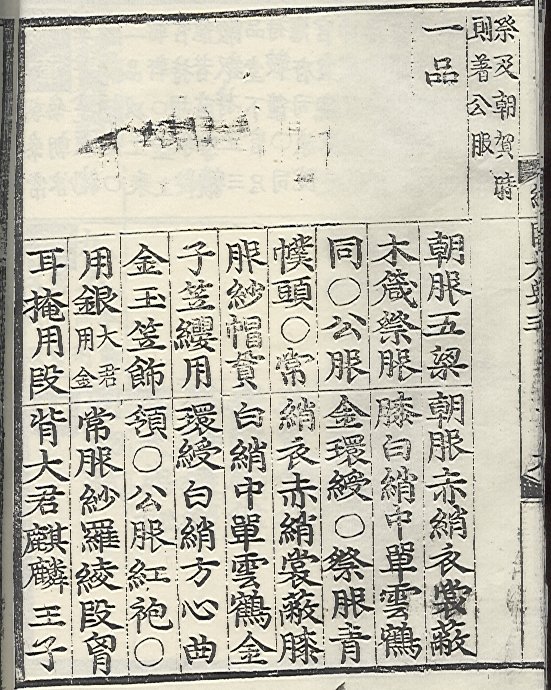 祭及朝賀時
則著公服
一品
朝服五梁
木箴祭服
同○公服
幞頭○常
服紗帽貫
子笠纓用
金玉笠飾
用銀大君
用金
耳掩用段
朝服赤綃衣裳蔽
膝白綃中單雲鶴
金環綬○祭服青
綃衣赤綃裳蔽膝
白綃中單雲鶴金
環綬白綃方心曲
領○公服紅袍○
常服紗羅綾段胷
背大君麒麟王子